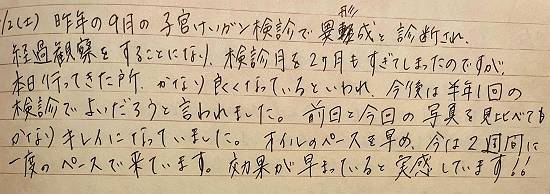 1/2(土) 昨年の9月の子宮けいガン検診で異形成と診断され、
経過観察をすることになり、検診月を2ヶ月もすぎてしまったのですが、
本日行ってきた所、かなり良くなっているといわれ、今後は半年1回の
検診でよいだろうと言われました。前回と今回の写真を見比べても
かなりキレイになっていました。オイルのペースを早め、今は2週間に
一度のペースで来ています。効果が早まっていると実感しています!!